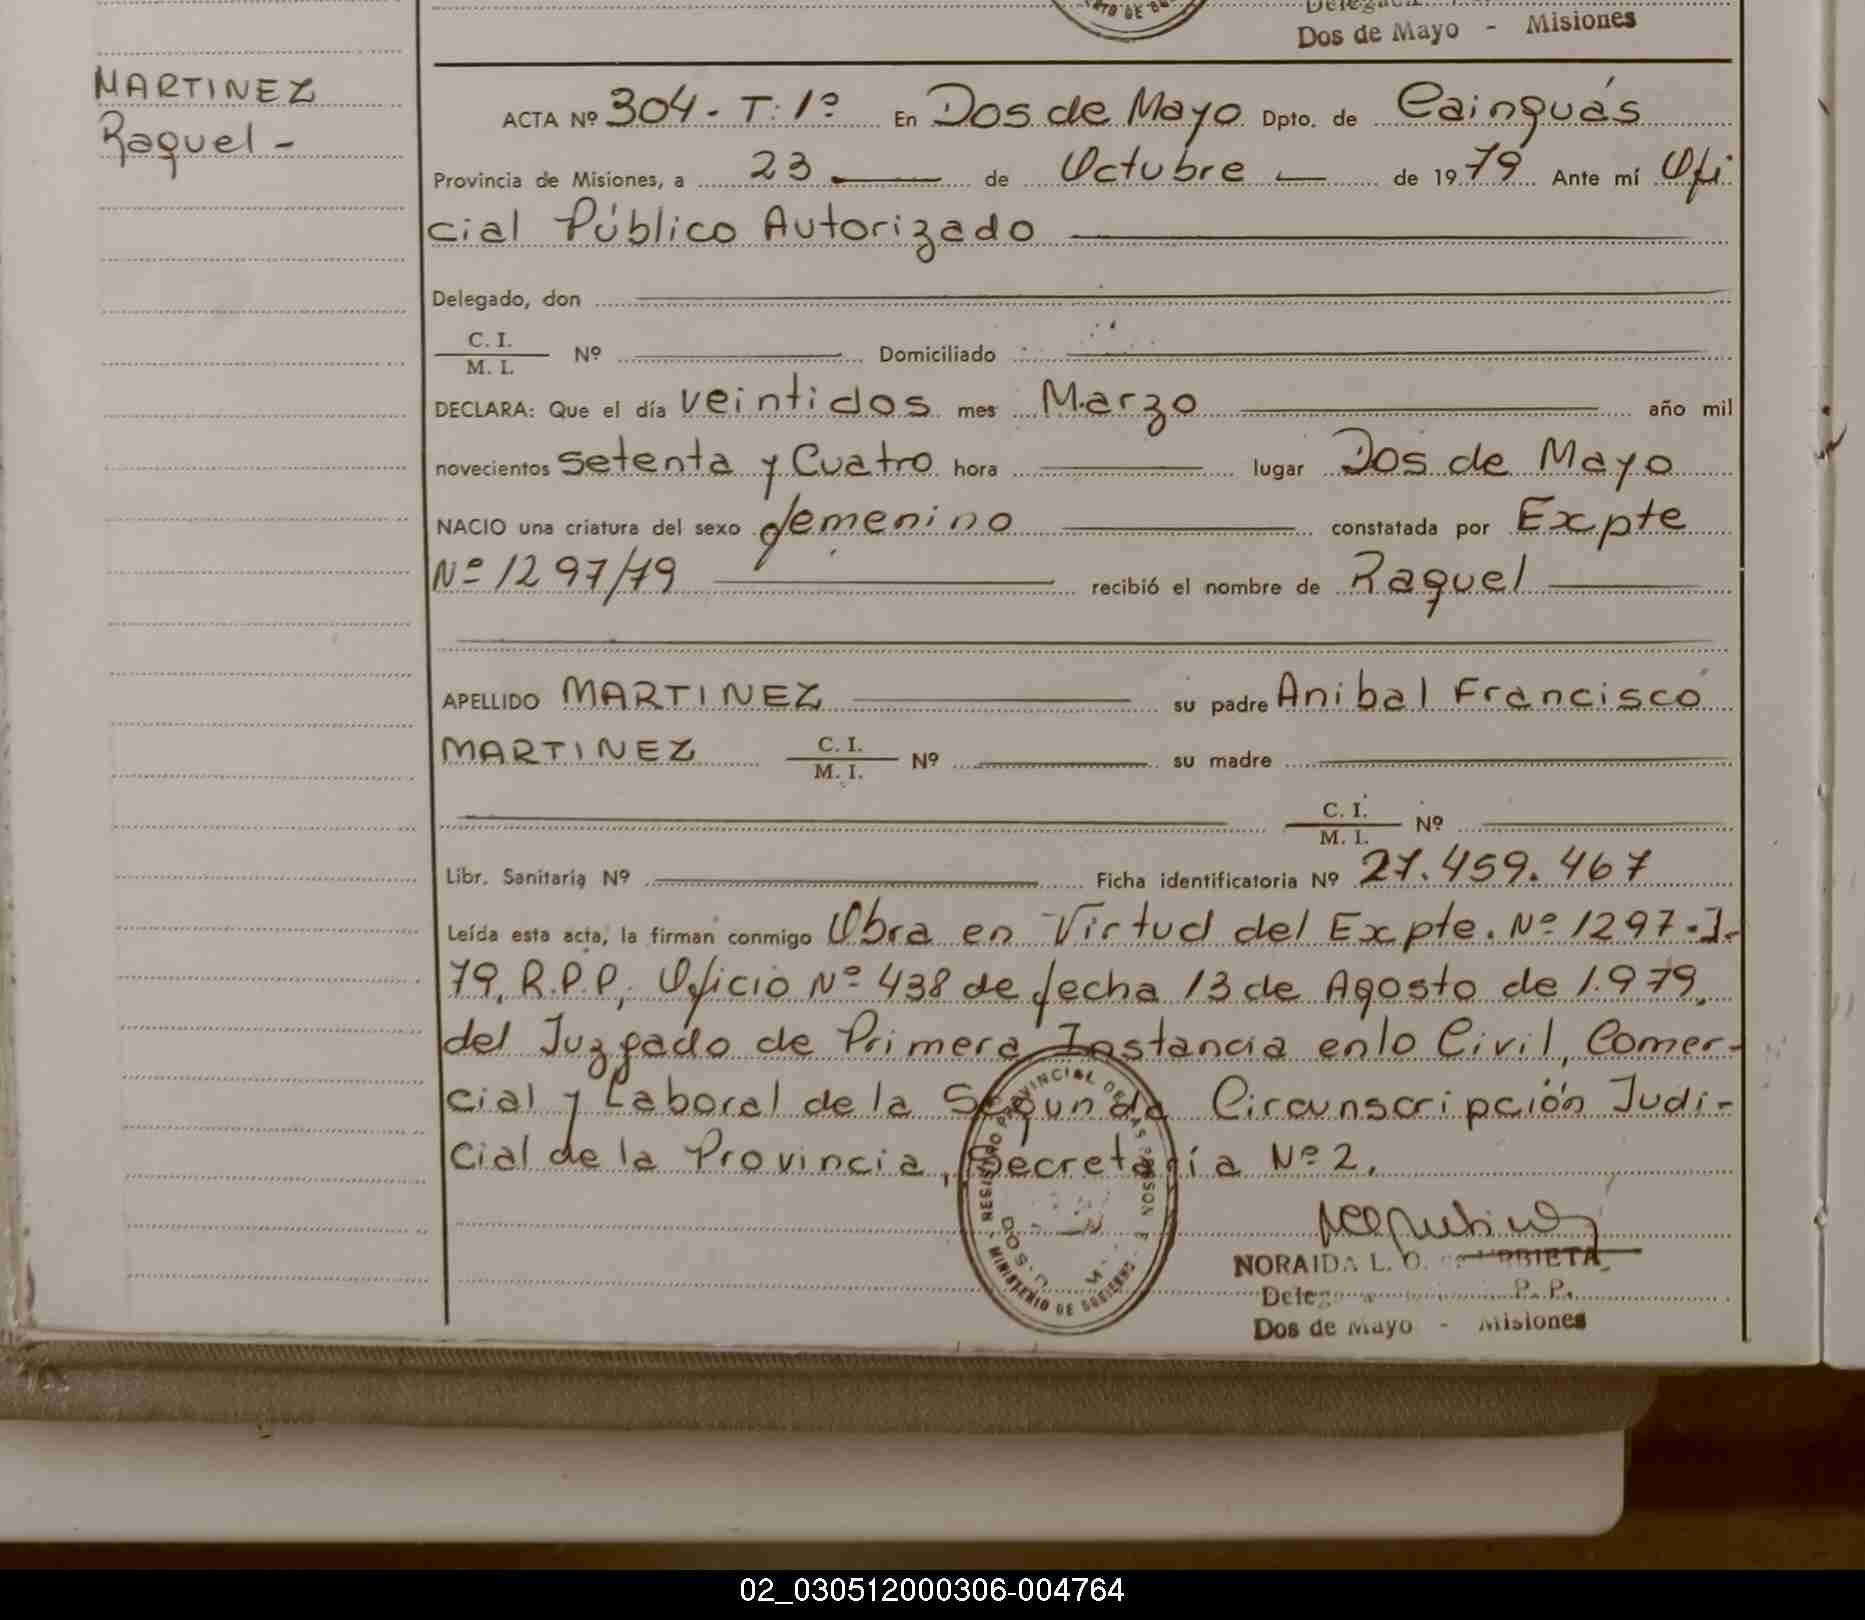 Dos de Mayo - Misiones
MARTINEZ
Raquel -
ACTA Nº 304 - T: 1º En Dos de Mayo Dpto. de Cainguás
Provincia de Misiones, a 23 de Octubre de 1979 Ante mí Ofi
cial Público Autorizado
Delegado, don
C. I.
M. I. Nº Domiciliado
DECLARA: Que el día veintidos mes Marzo año mil
novecientos setenta y Cuatro hora lugar Dos de Mayo
NACIO una criatura del sexo femenino constatada por Expte
Nº 1297/79 recibió el nombre de Raquel
APELLIDO MARTINEZ su padre Anibal Francisco
MARTINEZ C. I. M. I. Nº su madre
C. I. M. I. Nº
Libr. Sanitaria Nº Ficha identificatoria Nº 27.459.467
Leída esta acta, la firman conmigo Obra en Virtud del Expte. Nº 1297-I-
79, R.P.P, Oficio Nº 438 de fecha 13 de Agosto de 1.979,
del Juzgado de Primera Instancia en lo Civil, Comer-
cial y Laboral de la Segunda Circunscripción Judi-
cial de la Provincia, Secretaría Nº 2.
NORAIDA L. O.
P. P.
Dos de Mayo - Misiones
MINISTERIO DE GOBIERNO
02_030512000306-004764